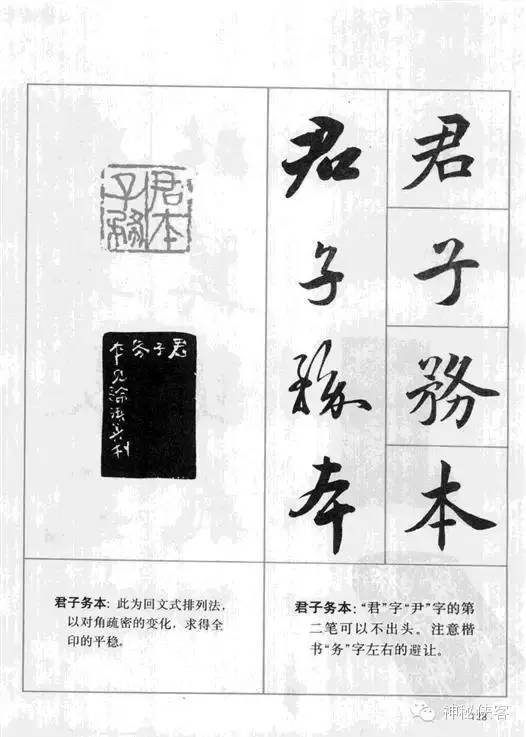 君
子
務
本
君
子
務
本
君
子務
本
君
子
务
本
君子务本:此为回文式排列法,
以对角疏密的变化,求得全
印的平稳。
君子务本:“君”字“尹”字的第
二笔可以不出头。注意楷
书“务”字左右的避让。
128
神秘侠客